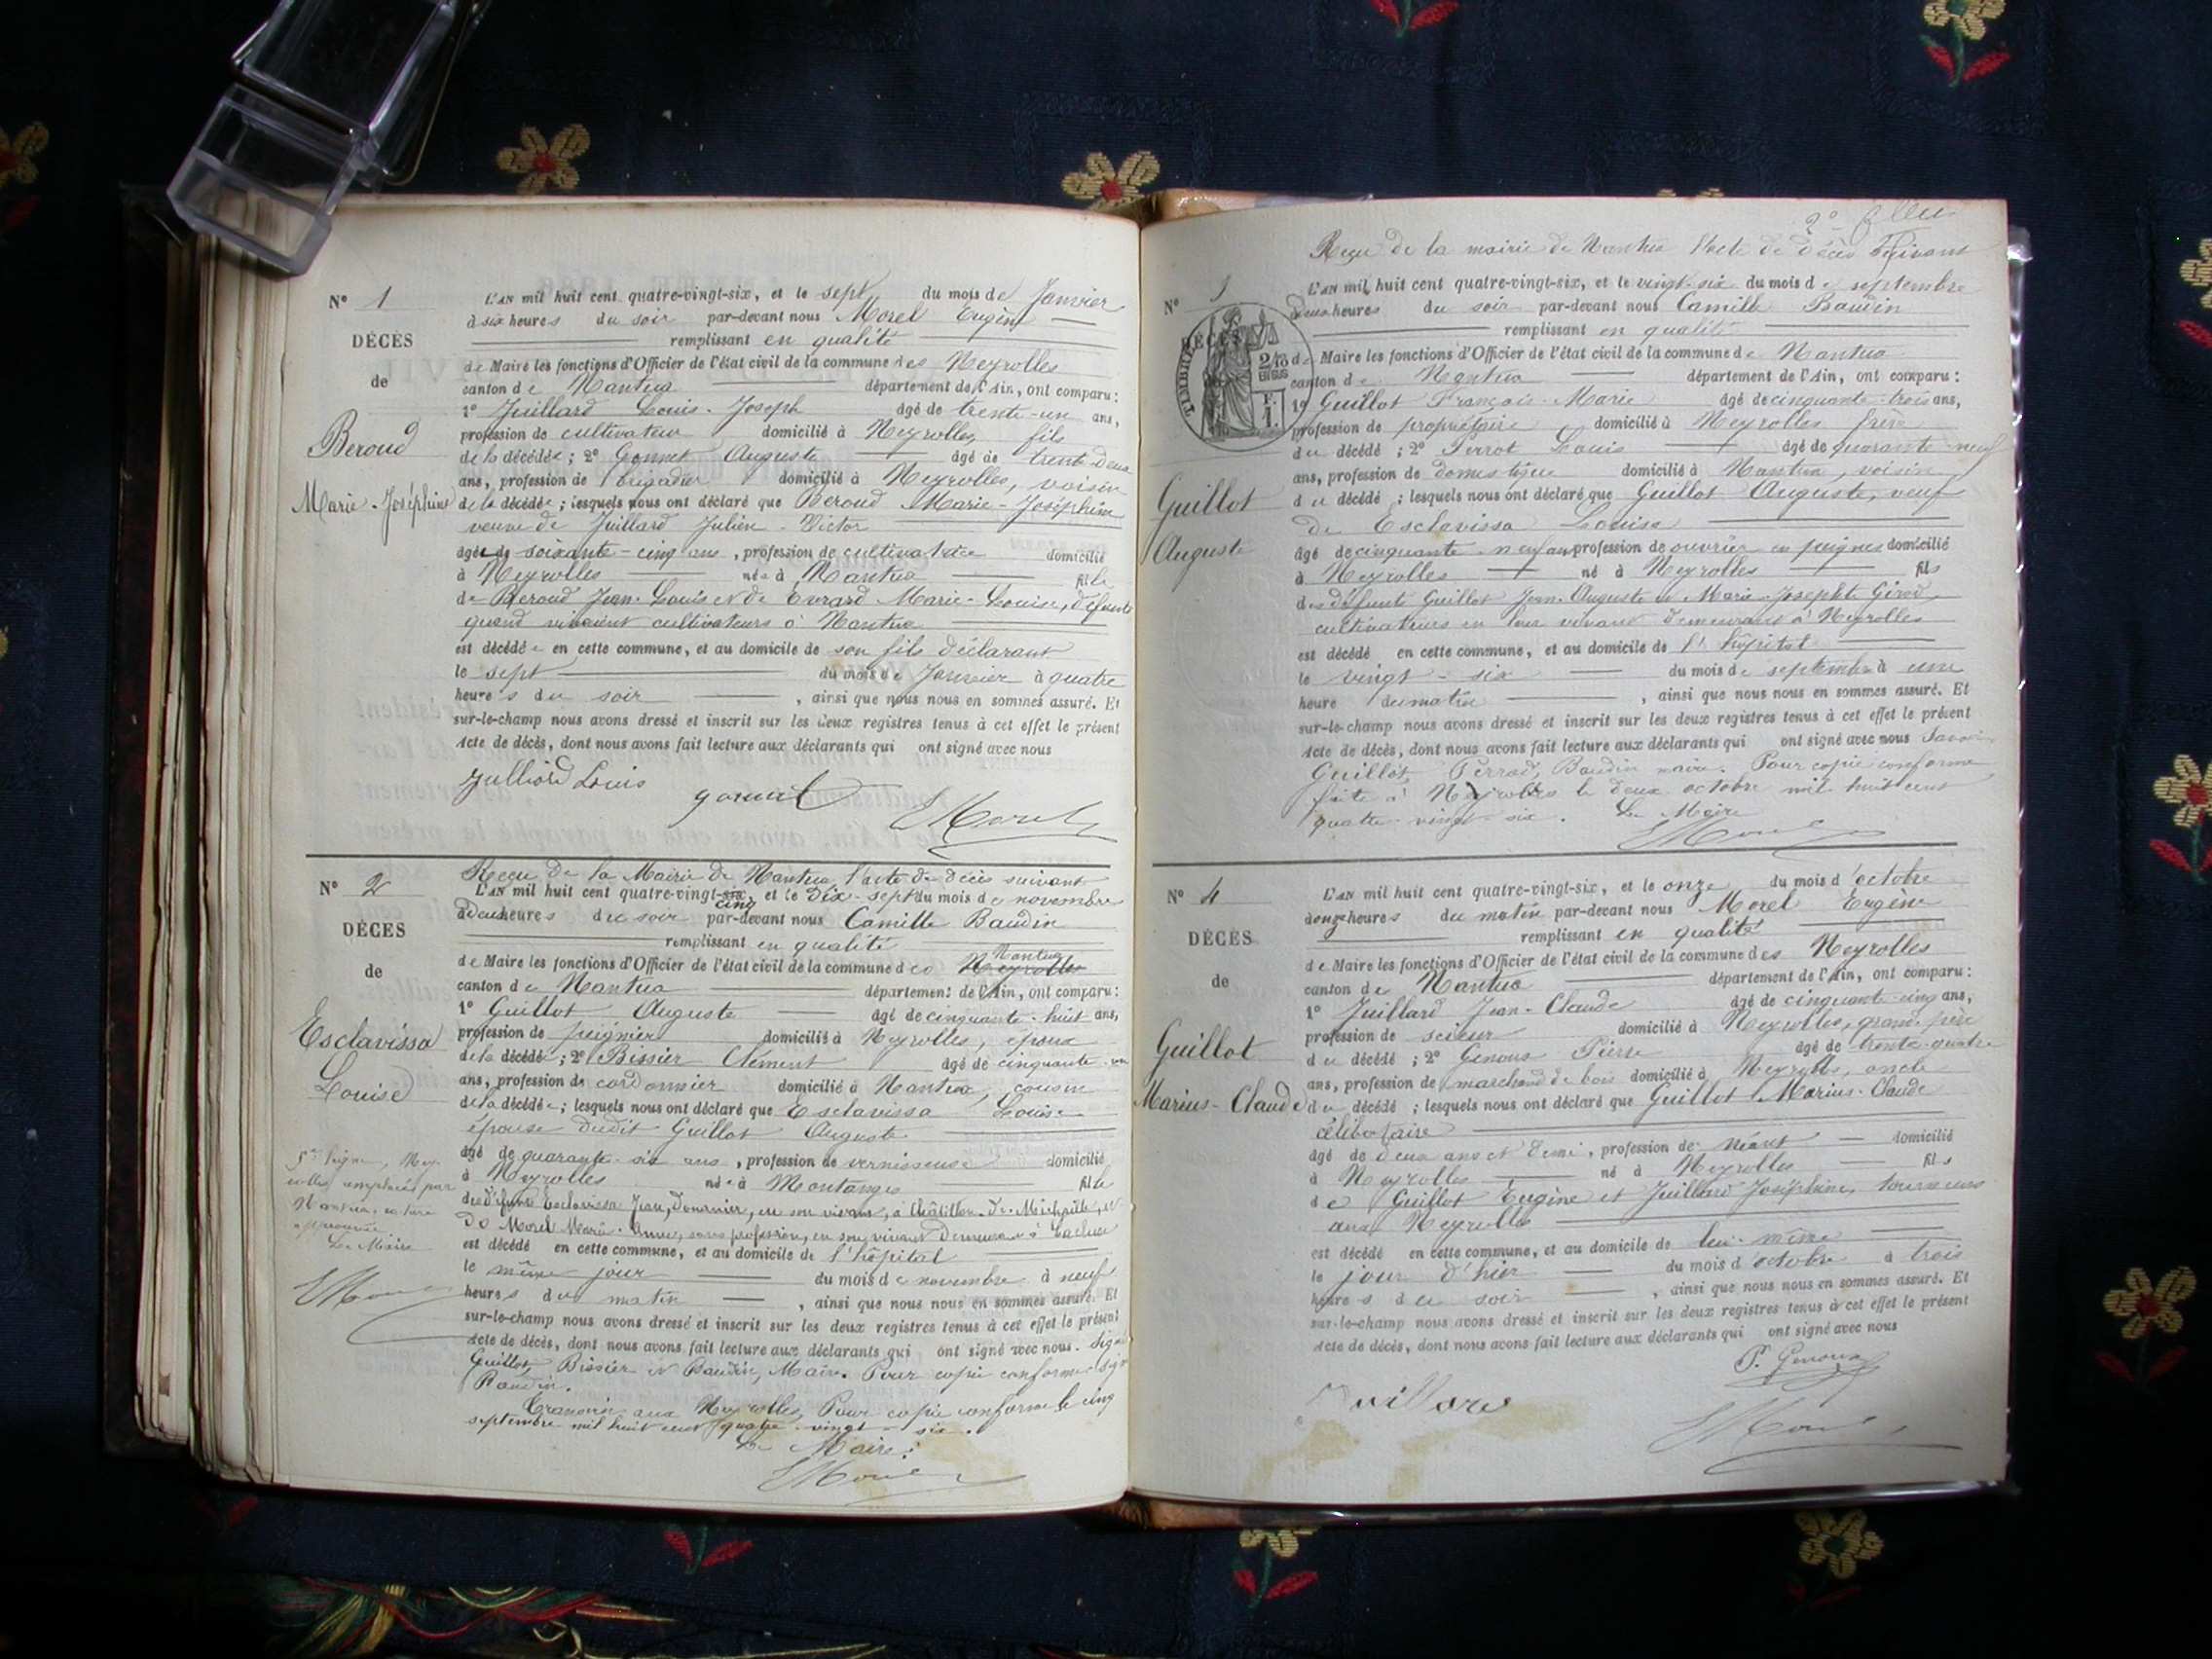 N° 1
DÉCÈS
de
Beroud
Marie-Joséphine
L'AN mil huit cent quatre-vingt-six, et le sept du mois de Janvier
à six heures du soir par-devant nous Morel Eugène
remplissant en qualité
de Maire les fonctions d'Officier de l'état civil de la commune des Neyrolles
canton de Nantua département de l'Ain, ont comparu :
1° Juillard Louis-Joseph âgé de trente-un ans,
profession de cultivateur domicilié à Neyrolles fils
de la décédée ; 2° Gonnet Auguste âgé de trente-deux
ans, profession de brigadier domicilié à Neyrolles, voisin
de la décédée ; lesquels nous ont déclaré que Beroud Marie-Joséphine
veuve de Juillard Julien-Victor
âgée de soixante-cinq ans, profession de cultivatrice domicilié
à Neyrolles née à Nantua fille
de Beroud Jean-Louis et de Evrard Marie-Louise, défunts
quand vivaient cultivateurs à Nantua
est décédée en cette commune, et au domicile de son fils déclarant
le sept du mois de Janvier à quatre
heures du soir , ainsi que nous nous en sommes assuré. Et
sur-le-champ nous avons dressé et inscrit sur les deux registres tenus à cet effet le présent
Acte de décès, dont nous avons fait lecture aux déclarants qui ont signé avec nous
Julliard Louis
gonnet
EMorel
N° 2
DÉCÈS
de
Esclavissa
Louise
Reçu de la Mairie de Nantua l'acte de décès suivant
L'AN mil huit cent quatre-vingt-six, et le dix-sept du mois de novembre
cinq
à deux heures du soir par-devant nous Camille Baudin
remplissant en qualité
Nantua
de Maire les fonctions d'Officier de l'état civil de la commune des Neyrolles
canton de Nantua département de l'Ain, ont comparu :
1° Guillot Auguste âgé de cinquante-huit ans,
profession de peignier domicilié à Neyrolles, époux
de la décédée ; 2° Bissier Clément âgé de cinquante-un
ans, profession de cordonnier domicilié à Nantua, cousin
de la décédée ; lesquels nous ont déclaré que Esclavissa Louise
épouse dudit Guillot Auguste
âgé de quarante-six ans, profession de vernisseuse domicilié
à Neyrolles née à Montanges fille
des défunts Esclavissa Jean, en son vivant, à Châtillon-de-Michaille, et
de Morel Marie-Anne, sans profession, en son vivant demeurant à
est décédé en cette commune, et au domicile de l'hôpital
le même jour du mois de novembre à neuf
heures du matin , ainsi que nous nous en sommes assuré. Et
sur-le-champ nous avons dressé et inscrit sur les deux registres tenus à cet effet le présent
Acte de décès, dont nous avons fait lecture aux déclarants qui ont signé avec nous. Signé
Guillot, Bissier et Baudin, Maire. Pour copie conforme signé
Baudin.
Transcrit aux Neyrolles, Pour copie conforme le cinq
septembre mil huit cent quatre-vingt-six.
Le Maire :
EMorel
5e ligne, Ney-
rolles remplacés par
Nantua, rature
approuvée
Le Maire
EMorel
2e f
Reçu de la mairie de Nantua l'acte de décès suivant
N° 3
DÉCÈS
TIMBRE
2/10 EN SUS
F. 1.
Guillot
Auguste
L'AN mil huit cent quatre-vingt-six, et le vingt-six du mois de septembre
deux heures du soir par-devant nous Camille Baudin
remplissant en qualité
de Maire les fonctions d'Officier de l'état civil de la commune de Nantua
canton de Nantua département de l'Ain, ont comparu :
1° Guillot François-Marie âgé de cinquante-trois ans,
profession de propriétaire domicilié à Neyrolles frère
du décédé ; 2° Perrot Louis âgé de quarante-neuf
ans, profession de domestique domicilié à Nantua, voisin
du décédé ; lesquels nous ont déclaré que Guillot Auguste, veuf
de Esclavissa Louise
âgé de cinquante-neuf ans profession de ouvrier en peignes domicilié
à Neyrolles né à Neyrolles fils
des défunts Guillot Jean-Auguste et Marie-Josephte Girod,
cultivateurs en leur vivant demeurant à Neyrolles
est décédé en cette commune, et au domicile de l'hôpital
le vingt-six du mois de septembre à une
heure du matin , ainsi que nous nous en sommes assuré. Et
sur-le-champ nous avons dressé et inscrit sur les deux registres tenus à cet effet le présent
Acte de décès, dont nous avons fait lecture aux déclarants qui ont signé avec nous Savoir
Guillot, Perrod, Baudin maire. Pour copie conforme
faite à Neyrolles le deux octobre mil huit cent
quatre-vingt-six. Le Maire
EMorel
N° 4
DÉCÈS
de
Guillot
Marius-Claude
L'AN mil huit cent quatre-vingt-six, et le onze du mois d'octobre
à onze heures du matin par-devant nous Morel Eugène
remplissant en qualité
de Maire les fonctions d'Officier de l'état civil de la commune des Neyrolles
canton de Nantua département de l'Ain, ont comparu :
1° Juillard Jean-Claude âgé de cinquante-cinq ans,
profession de scieur domicilié à Neyrolles, grand-père
du décédé ; 2° Genoux Pierre âgé de trente-quatre
ans, profession de marchand de bois domicilié à Neyrolles, oncle
du décédé ; lesquels nous ont déclaré que Guillot Marius-Claude
célibataire
âgé de deux ans et demi, profession de Néant domicilié
à Neyrolles né à Neyrolles fils
de Guillot Eugène et Juillard Joséphine, tourneurs
aux Neyrolles
est décédé en cette commune, et au domicile de lui-même
le jour d'hier du mois d'octobre à trois
heures du soir , ainsi que nous nous en sommes assuré. Et
sur-le-champ nous avons dressé et inscrit sur les deux registres tenus à cet effet le présent
Acte de décès, dont nous avons fait lecture aux déclarants qui ont signé avec nous
P. Genoux
Juillard
EMorel